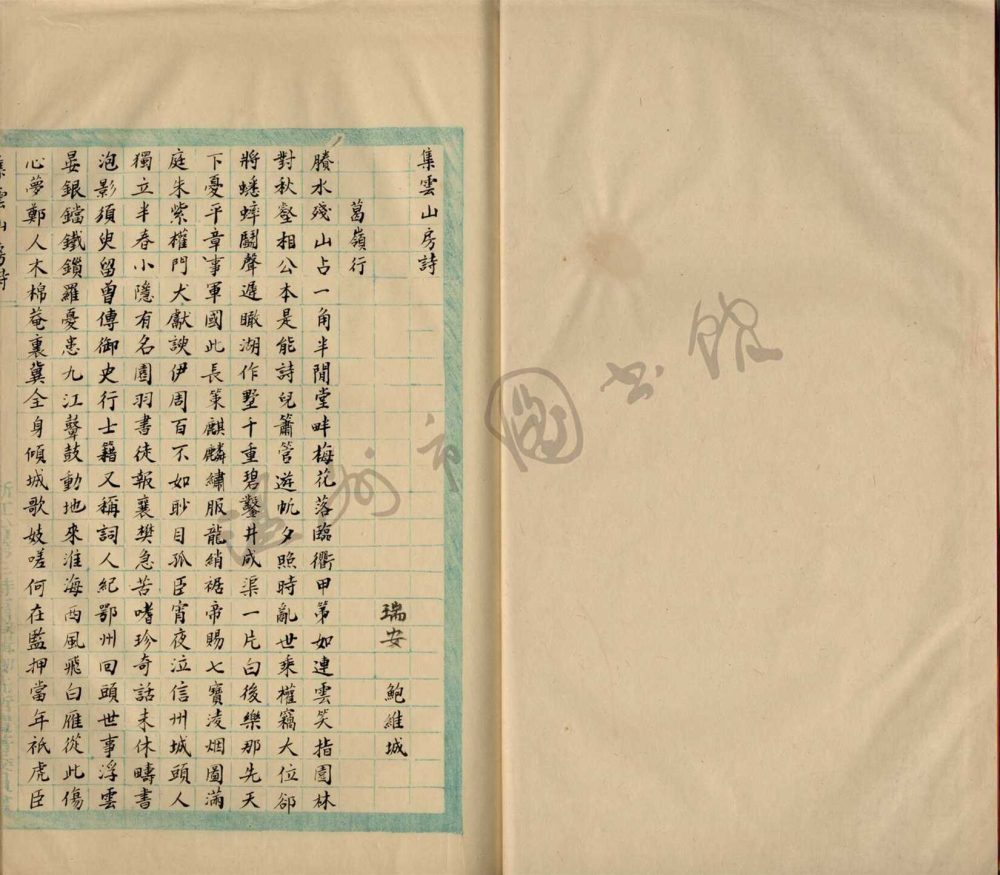 集雲山房詩
瑞安 鮑維城
葛嶺行
賸水殘山占一角半閒堂畔梅花落臨衢甲第如連雲笑指園林
對秋壑相公本是能詩兒簫管遊帆夕照時亂世乘權竊大位郤
將蟋蟀鬭聲遲瞰湖作墅千重碧鑿井成渠一片白後樂那先天
下憂平章事軍國此長策麒麟繡服龍綃裾帝賜七寶淩烟圖滿
庭朱紫權門犬獻諛伊周百不如眇目孤臣宵夜泣信州城頭人
獨立半春小隱有名園羽書徒報襄樊急苦嗜珍奇話未休疇書
泡影須臾留曾傳御史行士籍又稱詞人紀鄂州回頭世事浮雲
晏銀鐺鐵鎖羅憂患九江鼙鼓動地來淮海西風飛白雁從此傷
心夢鄭人木棉菴裏冀全身傾城歌妓嗟何在監押當年祇虎臣
集雲山房詩
溫州市圖書館